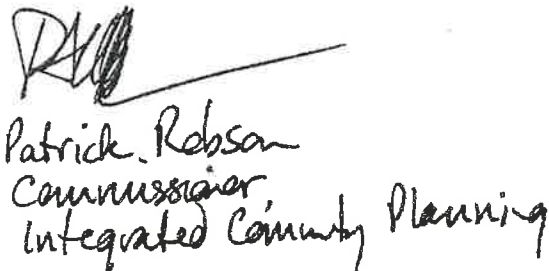 Patrick. Robson
Commissioner
Integrated Community Planning